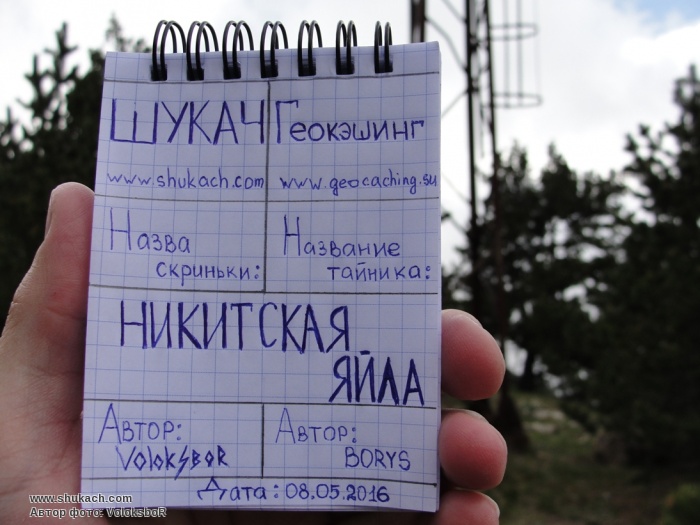 ШУКАЧ Геокэшинг
www.shukach.com www.geocaching.su
Назва Название
скриньки: тайника:
НИКИТСКАЯ
ЯЙЛА
Автор: Автор:
VoloKSboR BORYS
Дата: 08.05.2016
www.shukach.com
Автор фото: VoloksboR